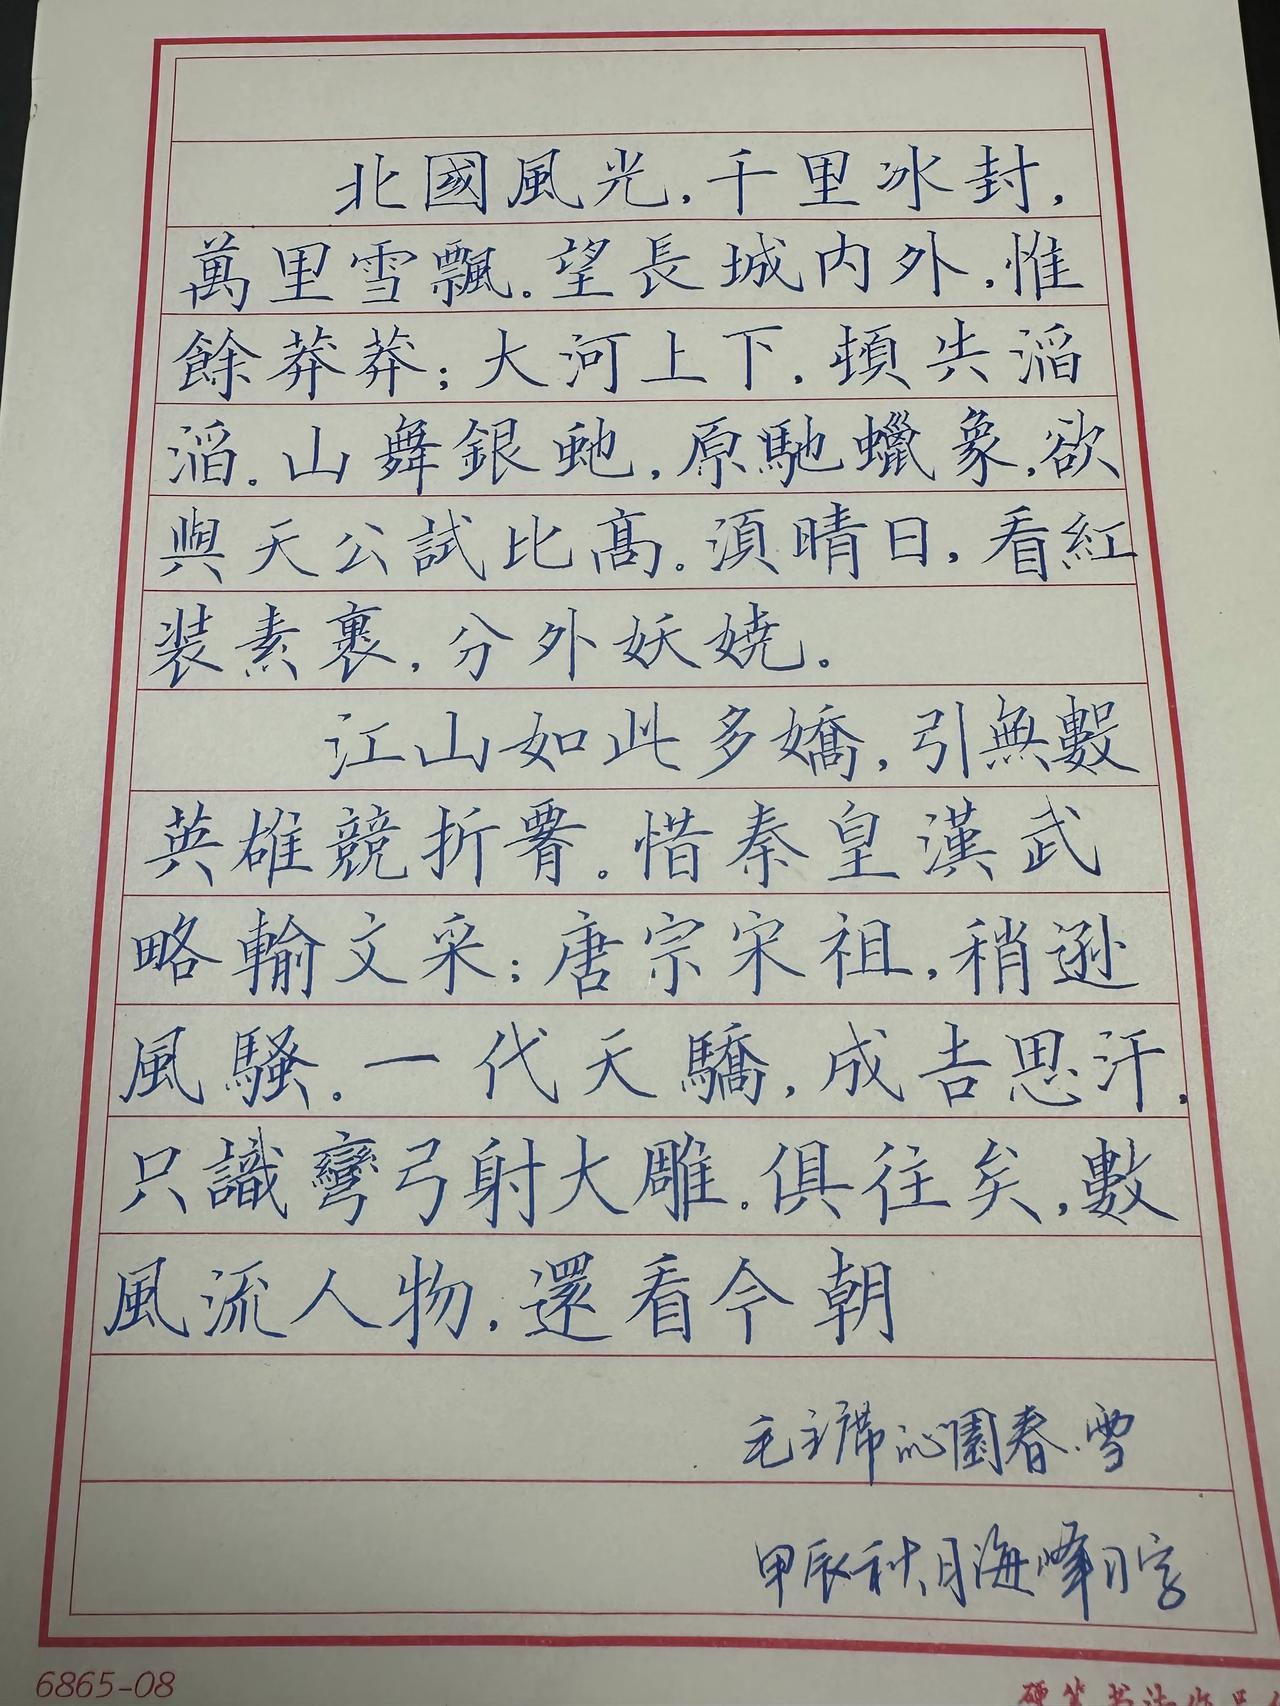 北國風光，千里冰封，
萬里雪飄。望長城内外，惟
餘莽莽；大河上下，頓失滔
滔。山舞銀虵，原馳蠟象，欲
與天公試比髙。須晴日，看紅
装素裹，分外妖嬈。
江山如此多嬌，引無數
英雄競折
。惜秦皇漢武
略輸文采；唐宗宋祖，稍遜
風騷。一代天驕，成吉思汗，
只識彎弓射大雕。俱往矣，數
風流人物，還看今朝
毛主席沁園春.雪
甲辰秋月海峰習字
6865-08
硬笔书法作品